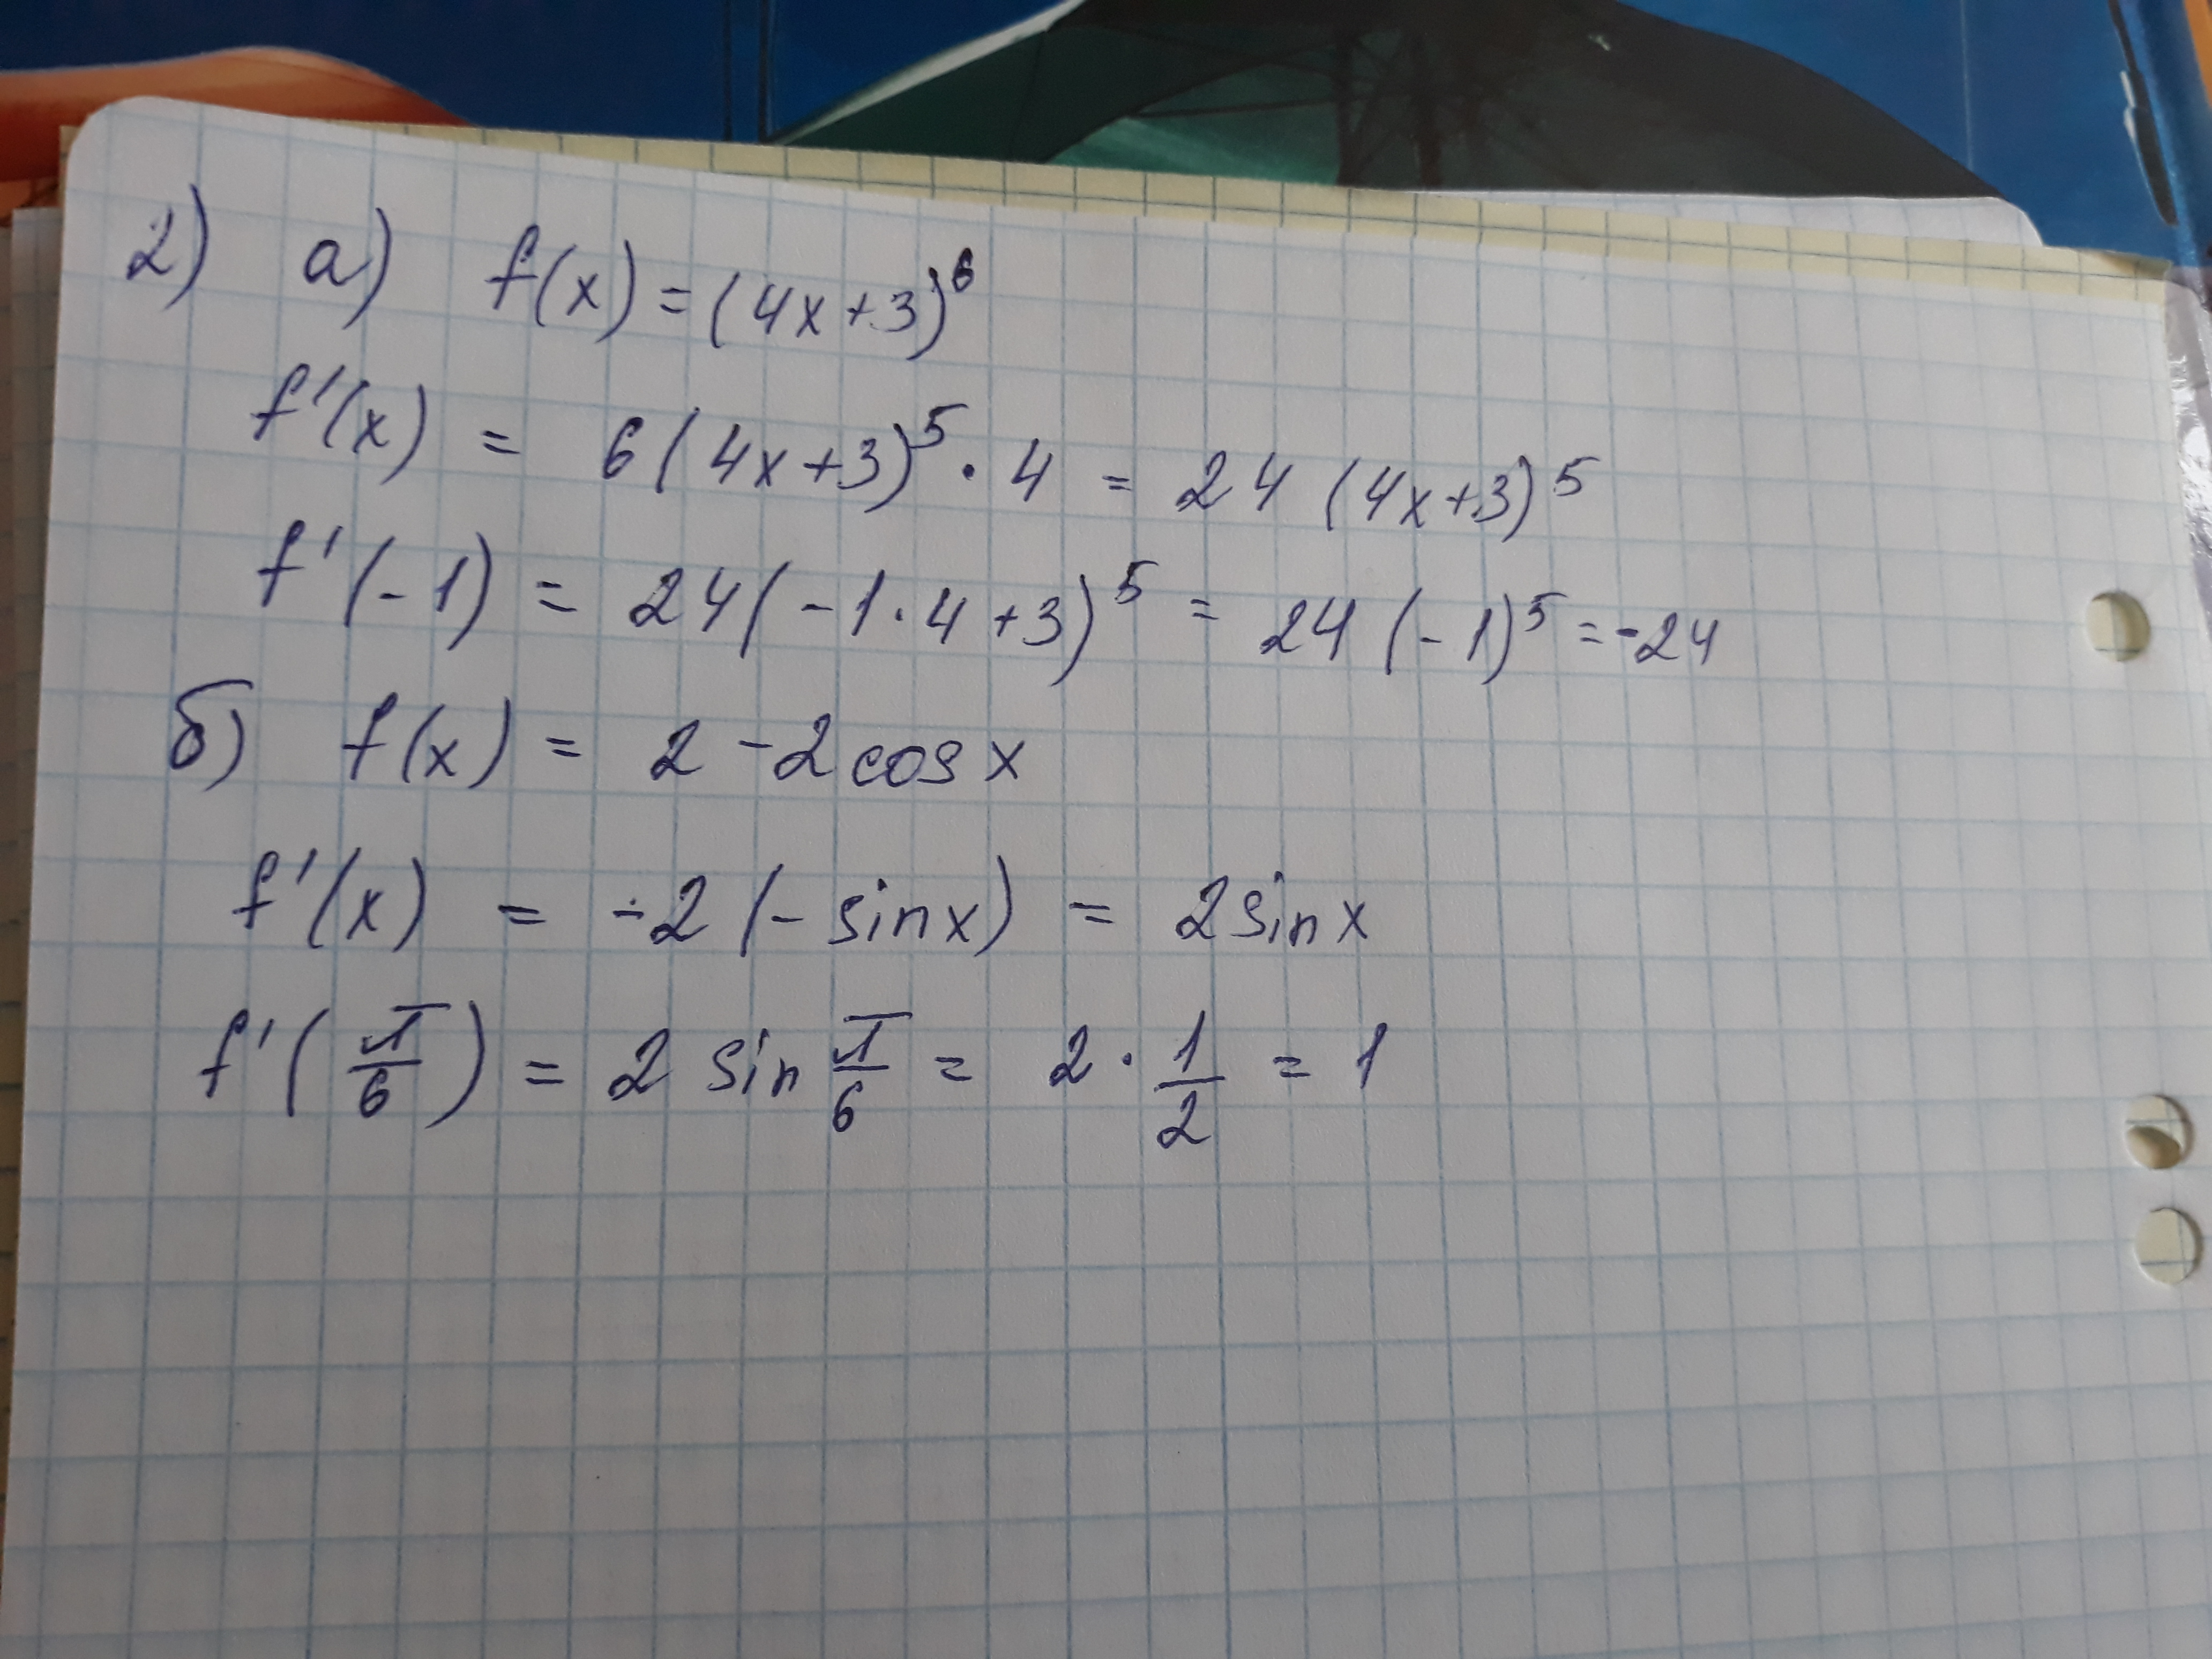 2) а) f(x) = (4x+3)⁶
f'(x) = 6(4x+3)⁵ · 4 = 24 (4x+3)⁵
f'(-1) = 24(-1·4+3)⁵ = 24(-1)⁵ = -24
б) f(x) = 2 - 2cos x
f'(x) = -2(-sinx) = 2sin x
f'(π/6) = 2 sin π/6 = 2 · 1/2 = 1